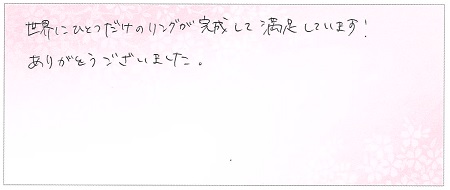 世界にひとつだけのリングが完成して満足しています!
ありがとうございました。